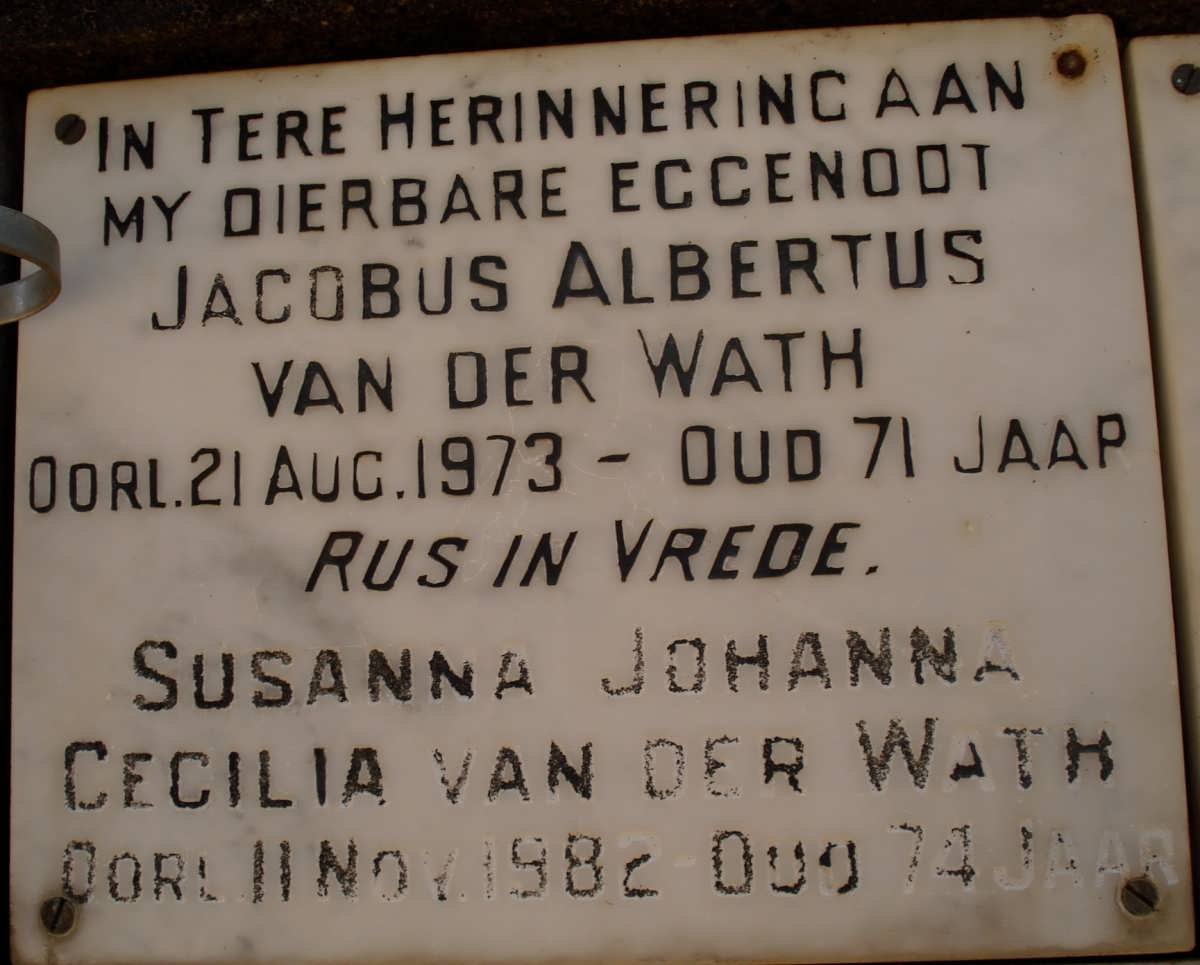 IN TERE HERINNERING AAN
MY DIERBARE EGGENOOT
JACOBUS ALBERTUS
VAN DER WATH
OORL. 21 AUG. 1973 - OUD 71 JAAR
RUS IN VREDE.
SUSANNA JOHANNA
CECILIA VAN DER WATH
OORL. 11 NOV. 1982 - OUD 74 JAAR